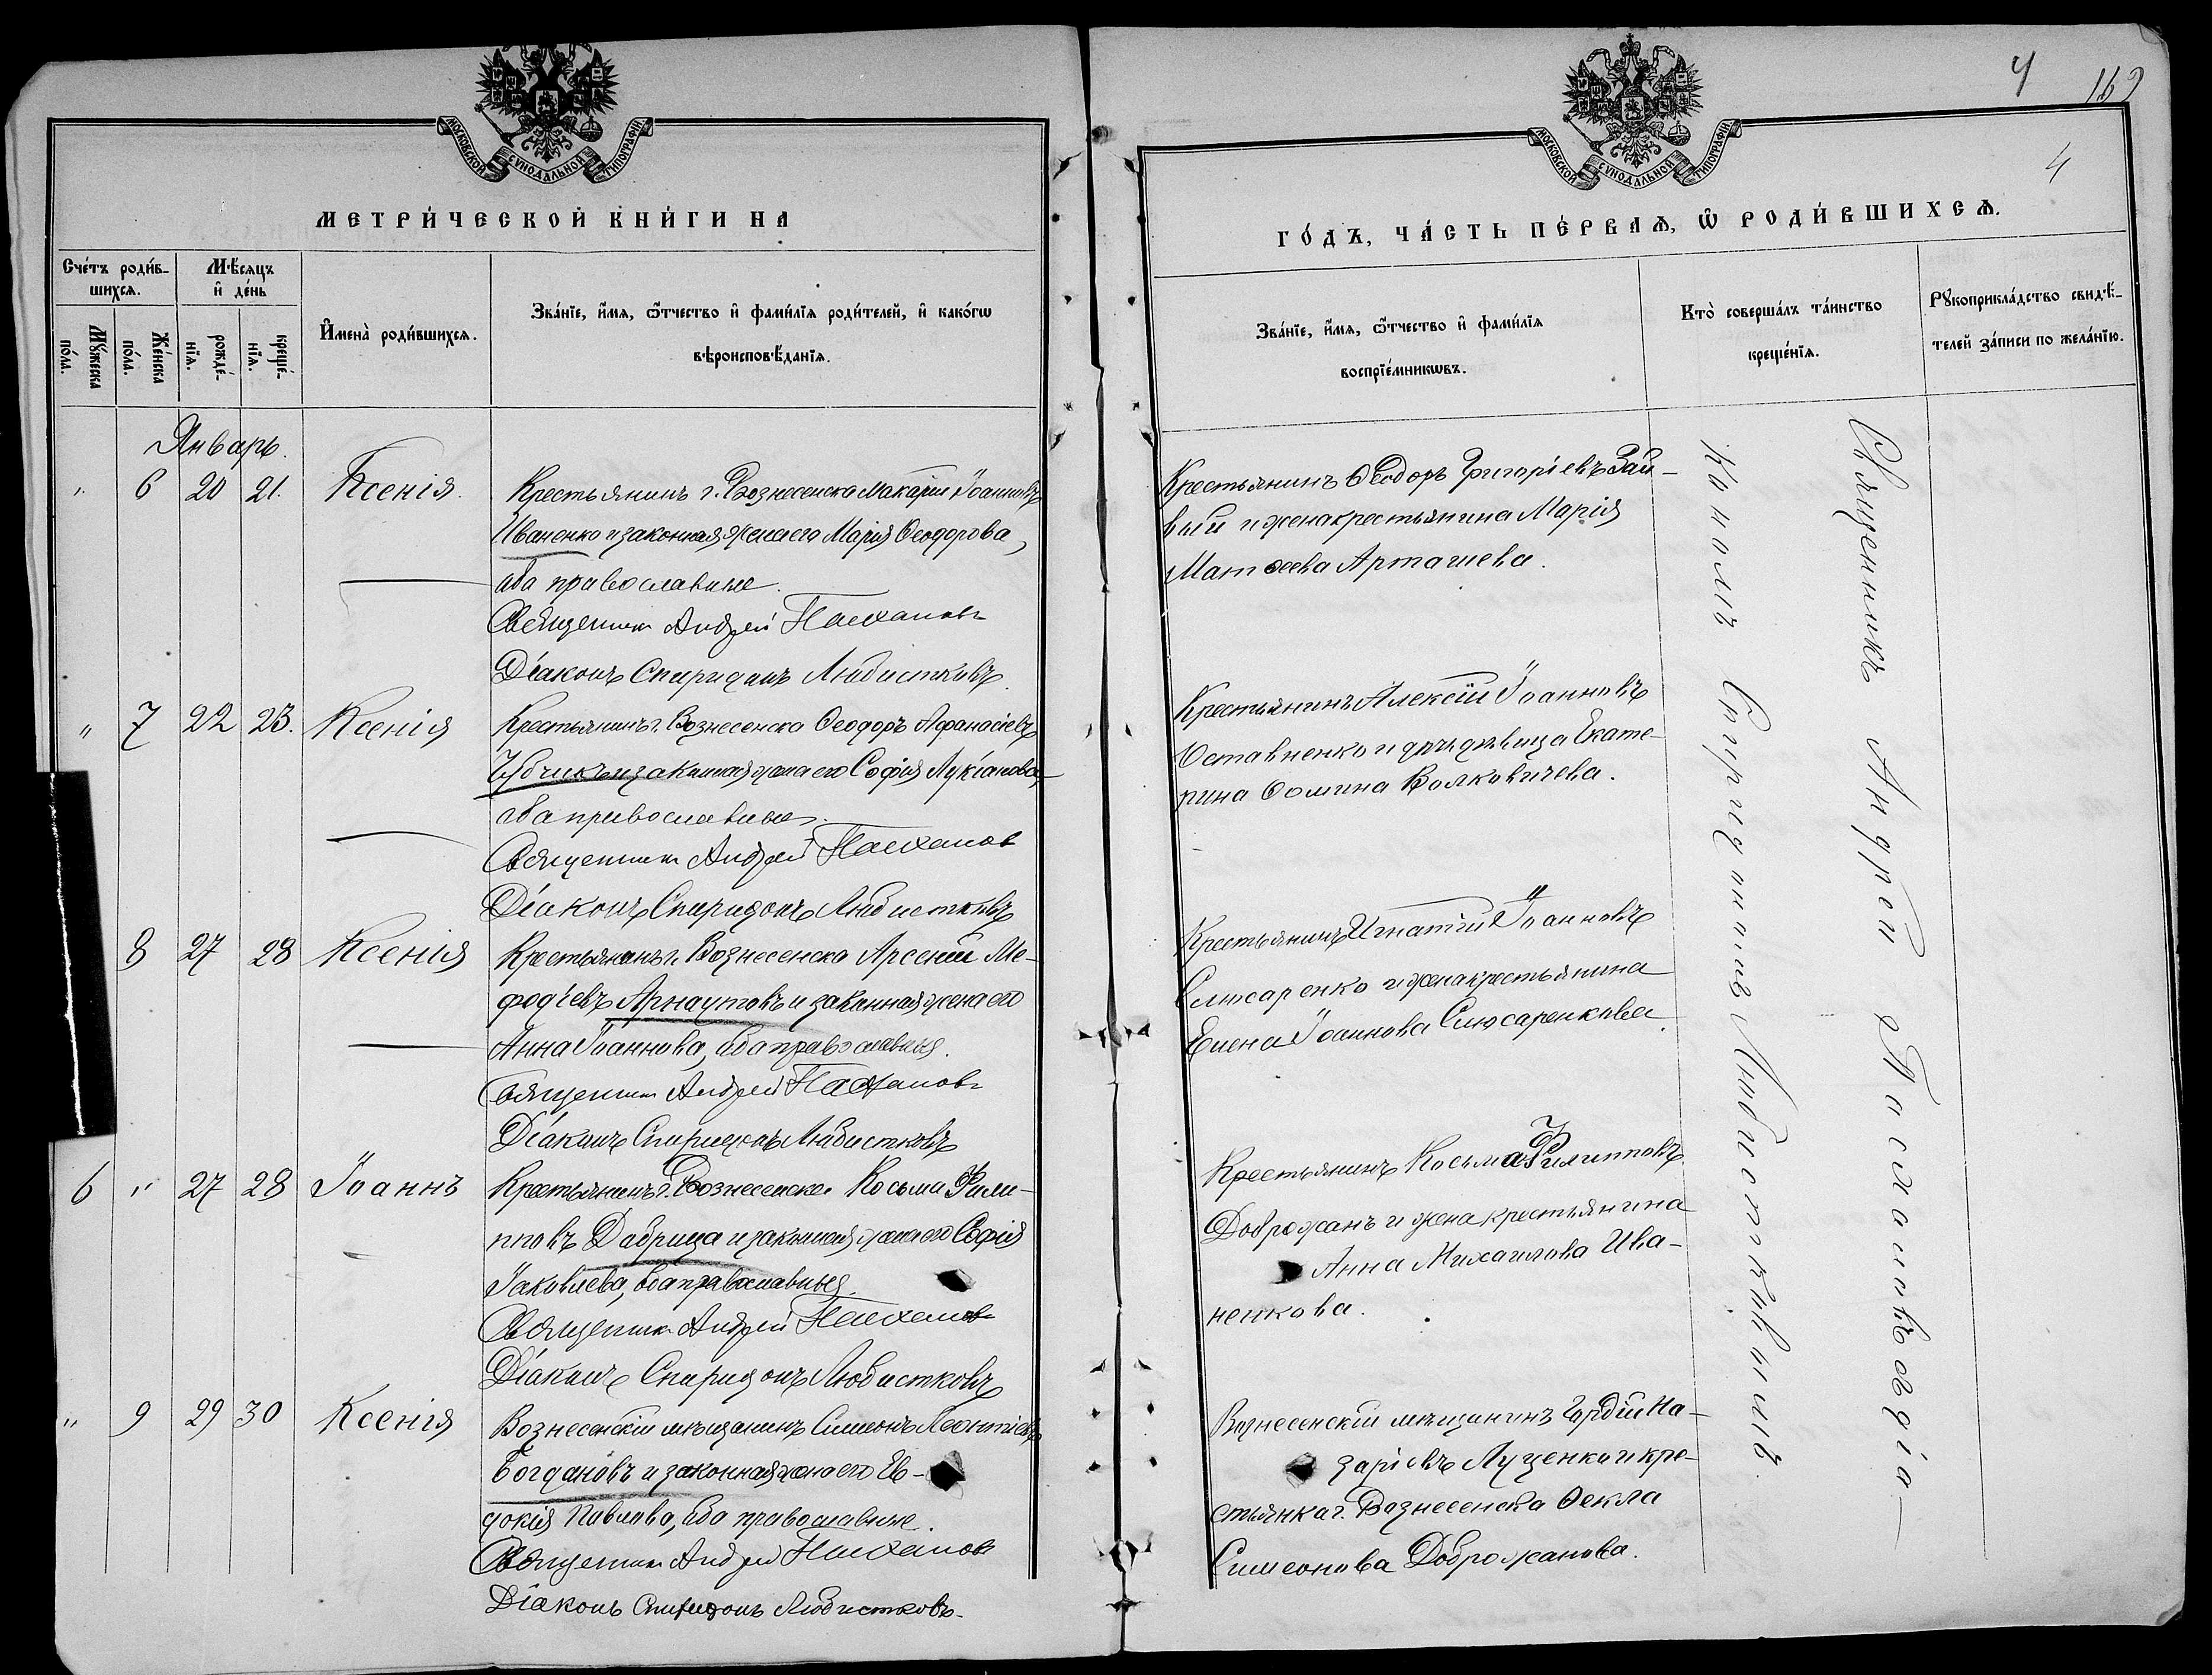 МОСКОВСКОЙ СѴНОДАЛЬНОЙ ТИПОГРАФІИ
МЕТРИ́ЧЕСКОЙ КНИ́ГИ НА
Сче́тъ роди́в-
шихсѧ.
Мѣ́сѧцъ
и҆ де́нь
Мꙋ́жеска
по́ла.
Же́нска
по́ла.
рожде́-
нїѧ.
креще́-
нїѧ.
И҆мена̀ роди́вшихсѧ.
Зва́нїе, и҆́мѧ, ѻ҆́тчество и҆ фами́лїѧ роди́телей, и҆ како́гѡ
вѣроисповѣ́данїѧ.
Январь.
" 6 20 21. Ксенія.
Крестьянинъ г. Вознесенска Макарій Іоанновъ
Иваненко и законная жена его Марія Ѳеодорова,
оба православные.
Священникъ Андрей Пасхаловъ
Діаконъ Спиридонъ Любистковъ
" 7 22 23. Ксенія
Крестьянинъ г. Вознесенска Ѳеодоръ Аѳанасіевъ
Чубчикъ и законная жена его Софія Лукіанова,
оба православные.
Священникъ Андрей Пасхалов
Діаконъ Спиридонъ Любистковъ
8 27 28 Ксенія
Крестьянинъ г. Вознесенска Арсеній Ме-
фодіевъ Арнаутовъ и законная жена его
Анна Іоаннова, оба православные.
Священникъ Андрей Пасхаловъ
Діаконъ Спиридонъ Любистковъ
6 " 27 28 Іоаннъ
Крестьянинъ г. Вознесенска Косьма Фили-
пповъ Дабрица и законная жена его Софія
Іаковлева, оба православные.
Священникъ Андрей Пасхаловъ
Діаконъ Спиридонъ Любистковъ
" 9 29 30 Ксенія
Вознесенскій мѣщанинъ Симеонъ Леонтіевъ
Богдановъ и законная жена его Ев-
докія Павлова, оба православные.
Священникъ Андрей Пасхалов
Діаконъ Спиридонъ Любистковъ.
4 169
4
МОСКОВСКОЙ СѴНОДАЛЬНОЙ ТИПОГРАФІИ
ГО́ДЪ, ЧА́СТЬ ПЕ́РВАѦ, Ѽ РОДИ́ВШИХСѦ.
Зва́нїе, и҆́мѧ, ѻ҆́тчество и҆ фами́лїѧ
воспрїе́мникѡвъ.
Кто̀ соверша́лъ та́инство
креще́нїѧ.
Рꙋкоприкла́дство свидѣ́-
телей за́писи по жела́нїю.
Крестьянинъ Ѳеодоръ Григоріевъ Зай-
вый и жена крестьянина Марія
Матѳеева Арташева.
Крестьянинъ Алексій Іоанновъ
Оставненко и дѣвица Екате-
рина Ѳомина Волковичева.
Крестьянинъ Игнатій Іоанновъ
Слюсаренко и жена крестьянина
Елена Іоаннова Слюсаренкова
Крестьянинъ Косьма Филипповъ
Доброжанъ и жена крестьянина
Анна Михаилова Ива-
ненкова.
Вознесенскій мѣщанинъ Гордій На-
заріевъ Луценко и кре-
стьянка г. Вознесенска Ѳекла
Симеонова Доброжанова.
Священникъ Андрей Пасхаловъ съ діа-
кономъ Спиридономъ Любистковымъ.